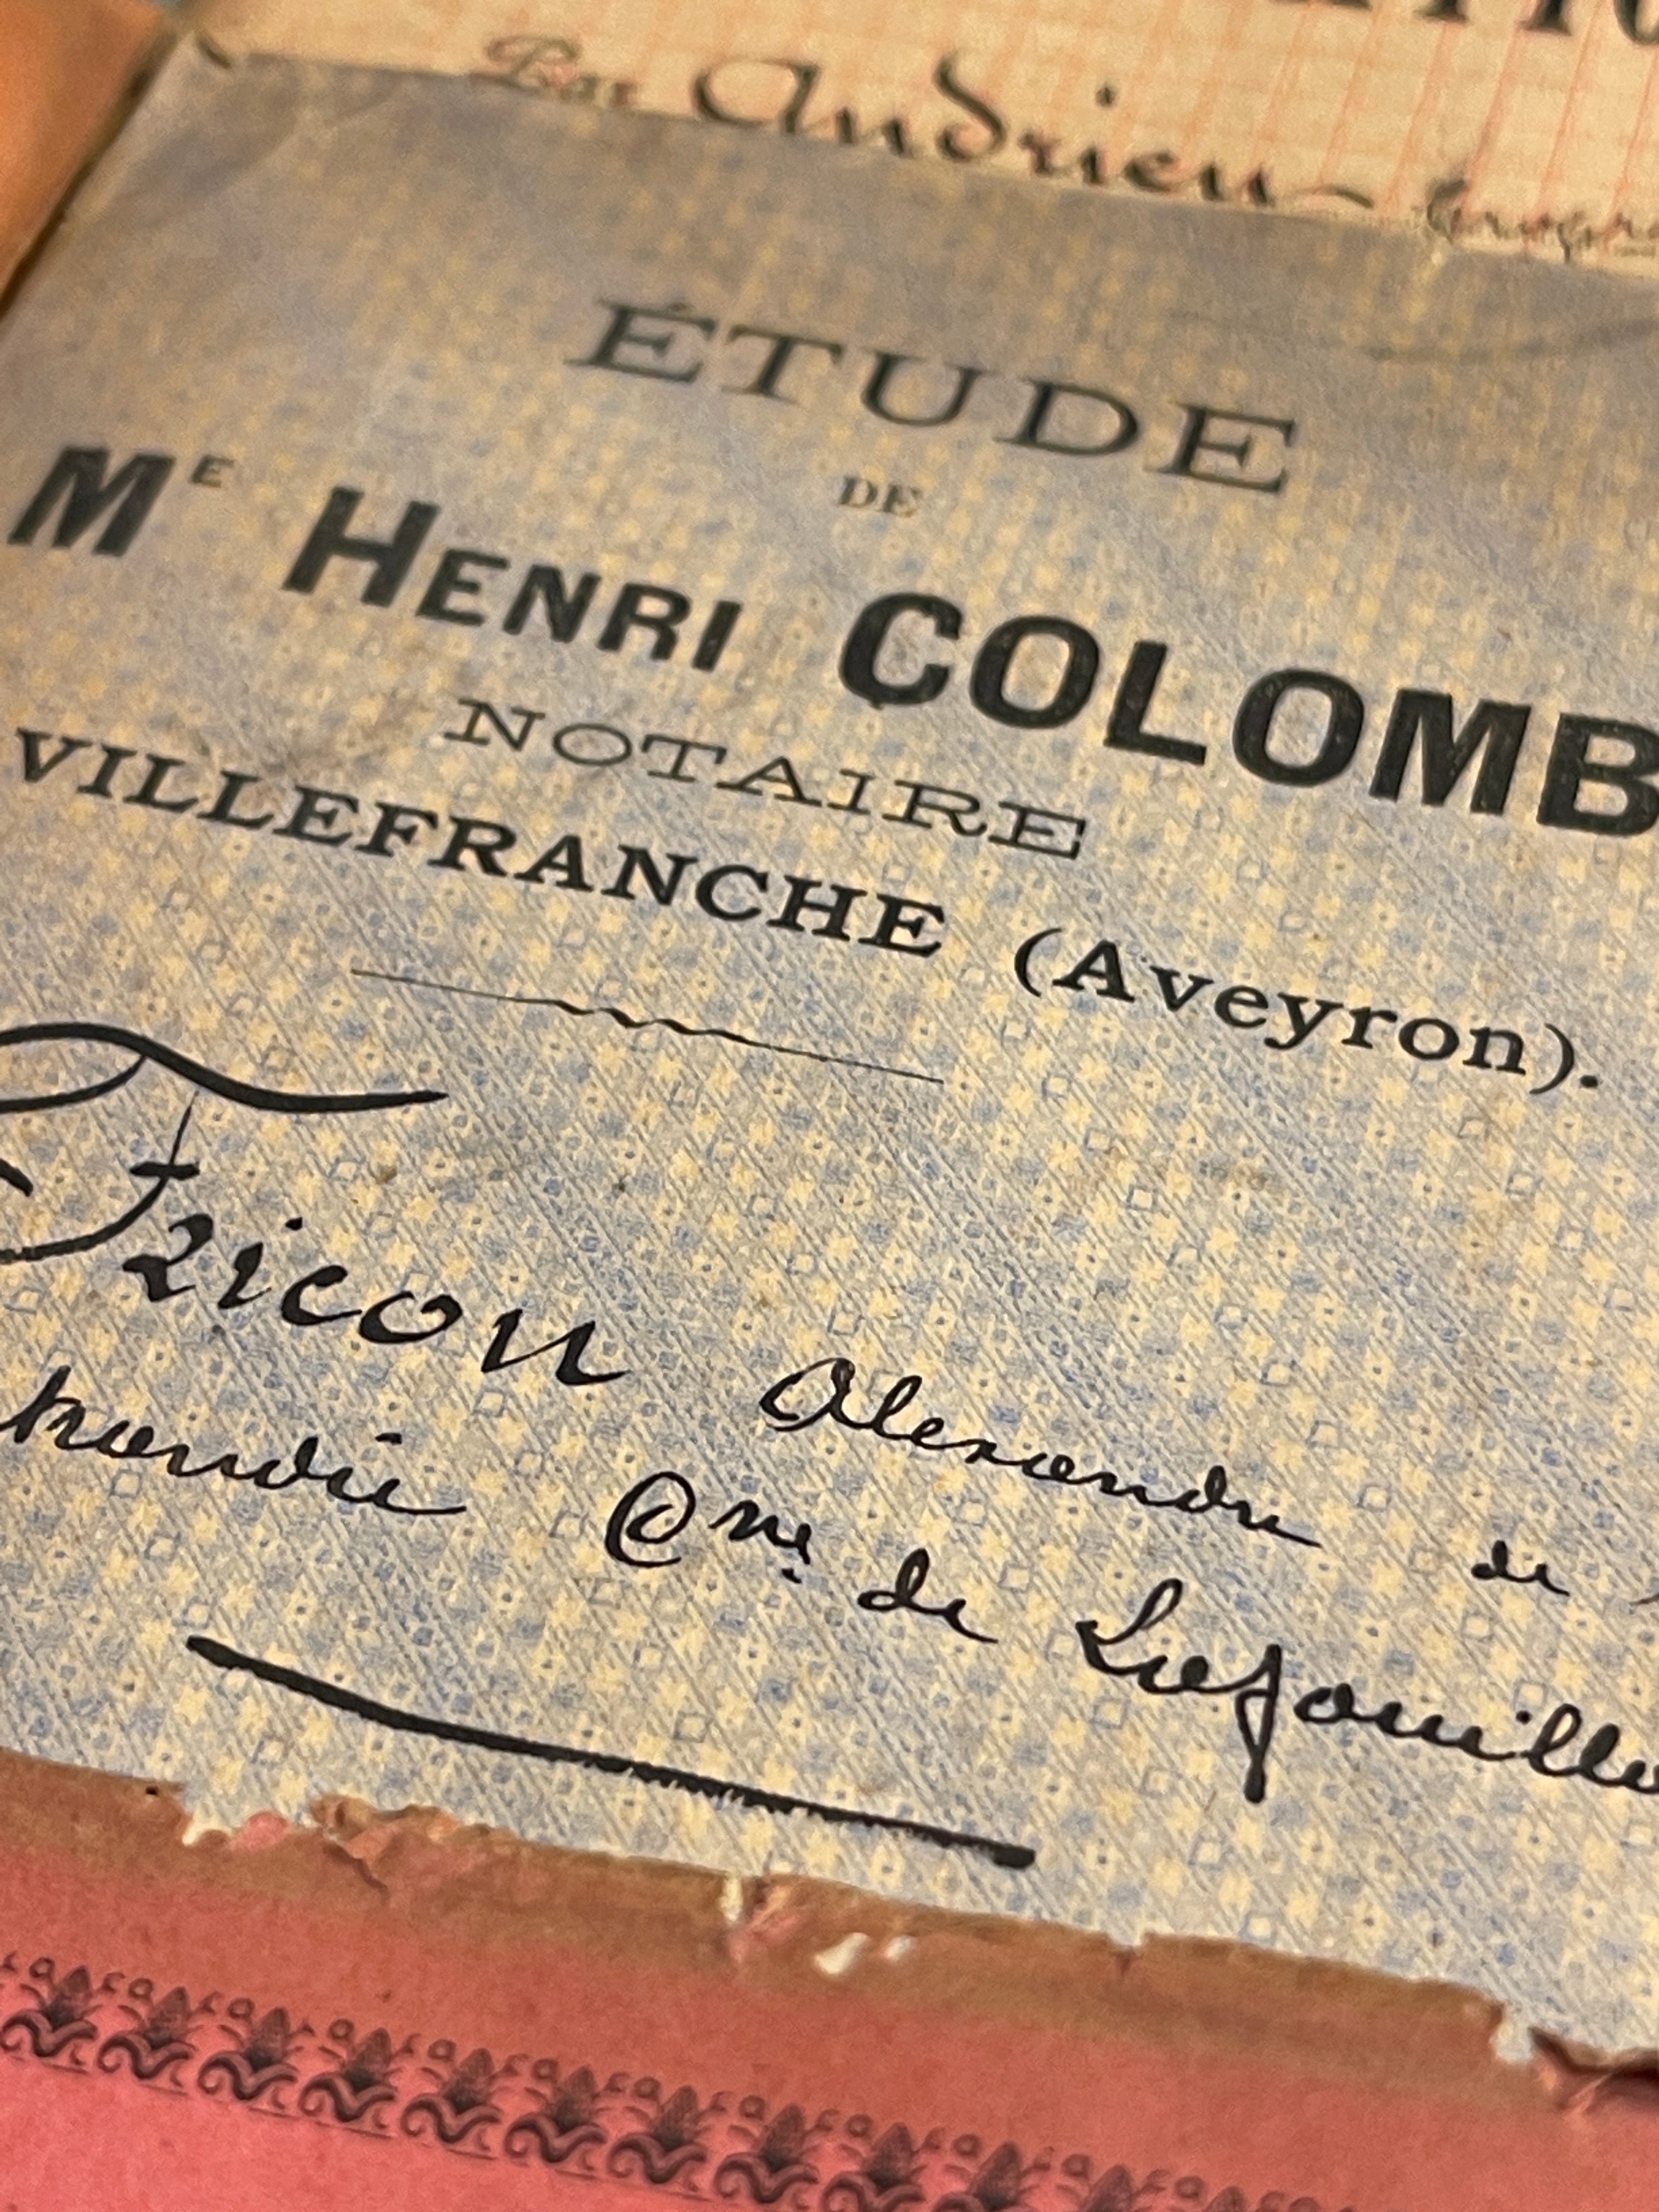 Par Andrieu
ÉTUDE
DE
ME HENRI COLOMB
NOTAIRE
VILLEFRANCHE (Aveyron).
Fricou Alexandre de
Cne de